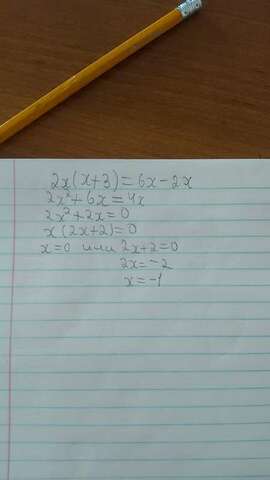 2x(x+3)=6x-2x
2x²+6x=4x
2x²+2x=0
x(2x+2)=0
x=0 или 2x+2=0
2x=-2
x=-1